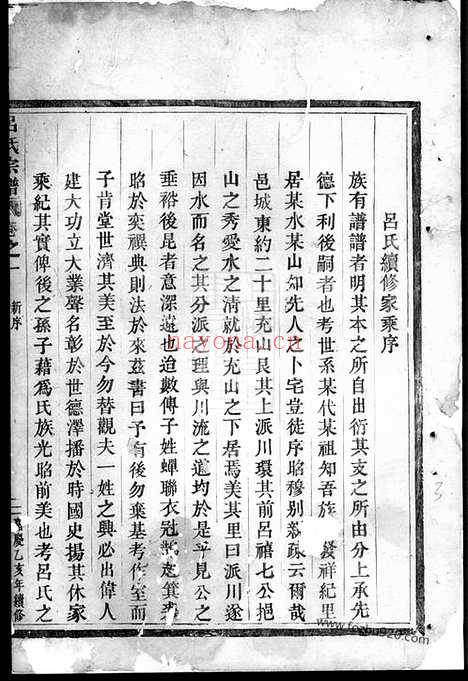 呂氏續修家乘序
族有譜譜者明其本之所自出衍其支之所由分上承先
德下利後嗣者也考世系某代某祖知吾族發祥紀里
居某水某山知先人之卜宅豈徒序昭穆別親疎云爾哉
邑城東約二十里充山艮其上派川環其前呂禧七公挹
山之秀愛水之清就於充山之下居焉美其里曰派川遂
因水而名之其分派之理與川流之道均於是乎見公之
垂裕後昆者意深遠也迨數傳子姓蟬聯衣冠 起箕裘
昭於奕禩典則法於來茲書曰予有後勿棄基考作室而
子肯堂世濟其美至於今勿替觀夫一姓之興必出偉人
建大功立大業聲名彰於世德澤播於時國史揚其休家
乘紀其實俾後之孫子藉為氏族光昭前美也考呂氏之
呂氏宗譜 卷之一 新序
慶乙亥年續修
3
nayona.cn
www.fozhu920.com